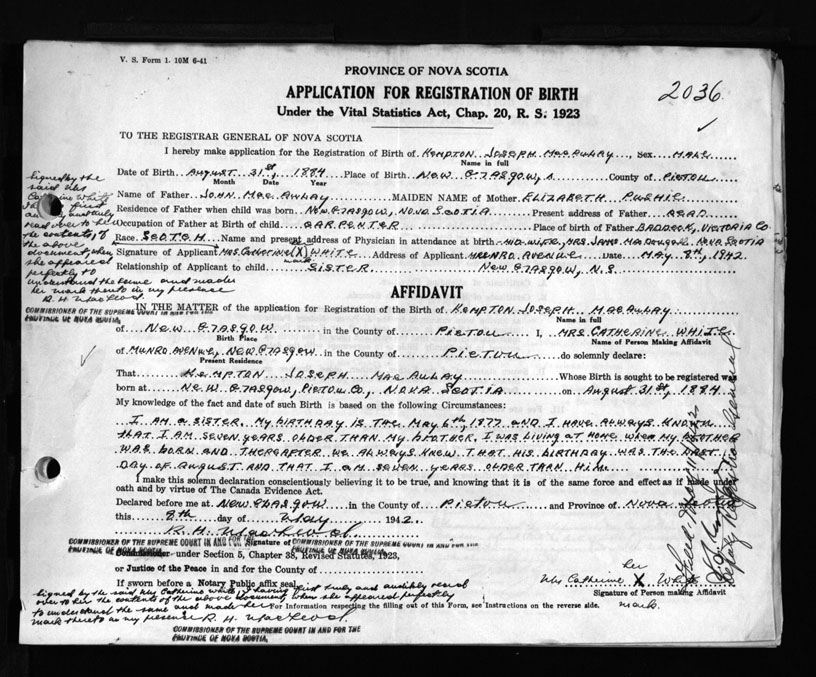 V. S. Form 1. 10M 6-41
PROVINCE OF NOVA SCOTIA
APPLICATION FOR REGISTRATION OF BIRTH
2036
Under the Vital Statistics Act, Chap. 20, R. S. 1923
TO THE REGISTRAR GENERAL OF NOVA SCOTIA
I hereby make application for the Registration of Birth of Kempton Joseph MacAulay, Sex Male
Name in full
Date of Birth August 31st, 1884 Place of Birth New Glasgow, s County of Pictou
Month Date Year
Name of Father John MacAulay MAIDEN NAME of Mother Elizabeth Pushie
Residence of Father when child was born New Glasgow, Nova Scotia Present address of Father Dead
Occupation of Father at Birth of child Carpenter Place of birth of Father Baddeck, Victoria Co
Race Scotch Name and present address of Physician in attendance at birth midwife, Mrs. James MacDougall Nova Scotia
Signature of Applicant Mrs. Catherine (X) White Address of Applicant Munro Avenue Date May 8th, 1942
mark
Relationship of Applicant to child Sister New Glasgow, N.S.
Signed by the
said Mrs
Catherine White
having first
audibly and truly
read over to her
the contents of
the above
document, when
she appeared
perfectly to
understand the same and made
her mark thereto in my presence
R. H. MacLeod
COMMISSIONER OF THE SUPREME COURT IN AND FOR THE
PROVINCE OF NOVA SCOTIA.
AFFIDAVIT
IN THE MATTER of the application for Registration of the Birth of Kempton Joseph MacAulay
Name in full
of New Glasgow in the County of Pictou I, Mrs. Catherine White
Birth Place Name of Person Making Affidavit
of Munro Avenue, New Glasgow in the County of Pictou do solemnly declare:
Present Residence
That Kempton Joseph MacAulay Whose Birth is sought to be registered was
born at New Glasgow, Pictou Co., Nova Scotia on August 31st, 1884
My knowledge of the fact and date of such Birth is based on the following Circumstances:
I am a sister. My birthday is the May 6th, 1877 and I have always known
that I am seven years older than my brother, I was living at home when my brother
was born and thereafter we always knew that his birthday was the last
day of August and that I am seven years older than him.
I make this solemn declaration conscientiously believing it to be true, and knowing that it is of the same force and effect as if made under
oath and by virtue of The Canada Evidence Act.
Declared before me at New Glasgow in the County of Pictou and Province of Nova
this 8th day of May 1942.
R. H. MacLeod
COMMISSIONER OF THE SUPREME COURT IN AND FOR THE Signature of COMMISSIONER OF THE SUPREME COURT IN AND FOR THE
PROVINCE OF NOVA SCOTIA. Commissioner under Section 5, Chapter 38, Revised Statutes, 1923,
PROVINCE OF NOVA SCOTIA.
or Justice of the Peace in and for County of
If sworn before a Notary Public affix seal.
her
Mrs Catherine X White
Signature of Person making Affidavit
mark
Signed by the said Mrs Catherine White, having first truly and audibly read
over to her the contents of the above document when she appeared perfectly
to understand the same and made her
mark thereto in my presence R. H. MacLeod.
For Information respecting the filling out of this Form, see Instructions on the reverse side.
COMMISSIONER OF THE SUPREME COURT IN AND FOR THE
PROVINCE OF NOVA SCOTIA.
General